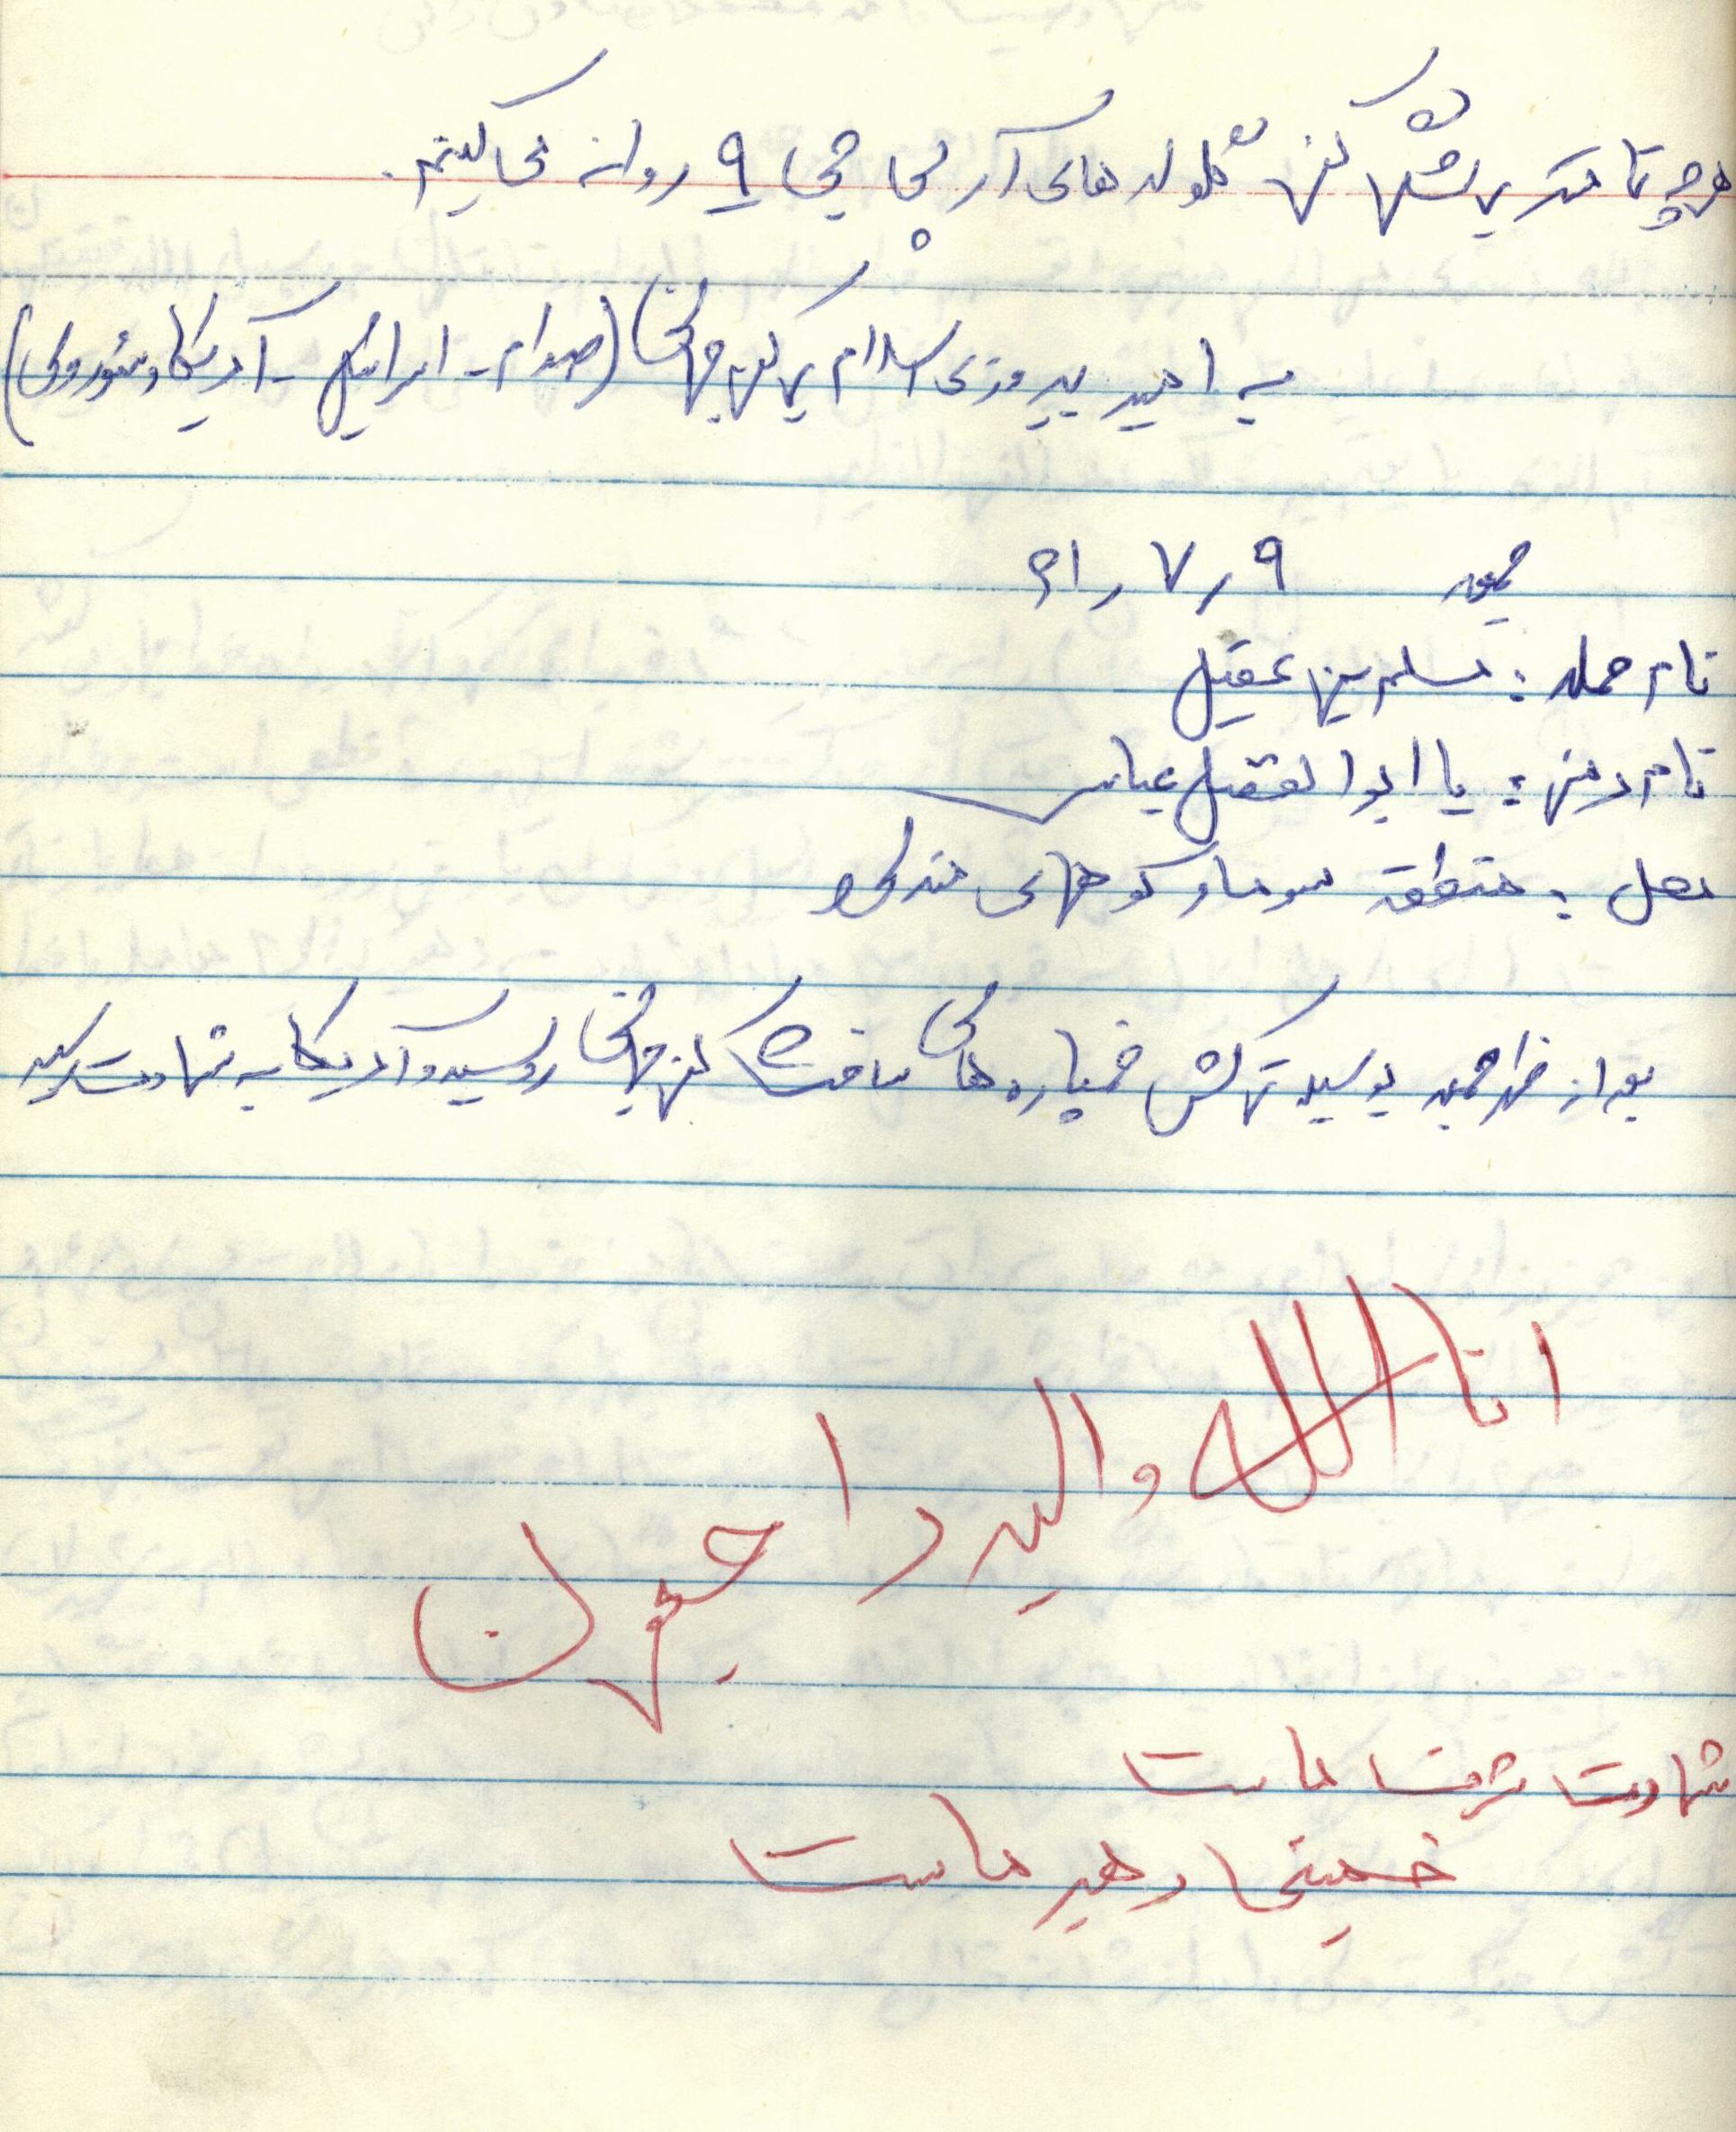 هرچه تمامتر بر تانکهای گلوله های آر پی جی ۹ روانه می کنیم.
به امید پیروزی اسلام بر کفر جهانی (صدام - اسرائیل - آمریکا و شوروی)
جمعه ۹ ر ۷ ر ۶۱
نام حمله : مسلم بن عقیل
نام رمز : یا ابوالفضل عباس
محل : منطقه سومار کوههای مندلی
بعد از ظهر جمعه بوسیله ترکش خمپاره های ساخت کفر جهانی روسیه و آمریکا به شهادت رسید
انا لله و الیه راجعون
شهادت شرف ماست
خمینی رهبر ماست